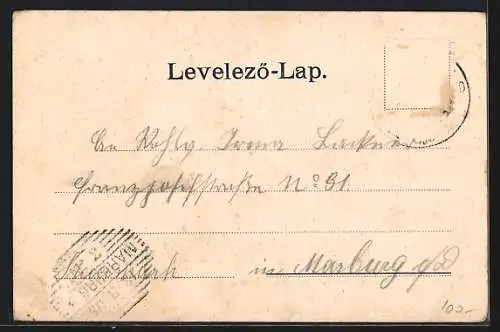 Levelező-Lap.
An Wohlg. Irma Lackner
Franz Josefstraße No 31.
in Marburg a/D
MARBURG
100-